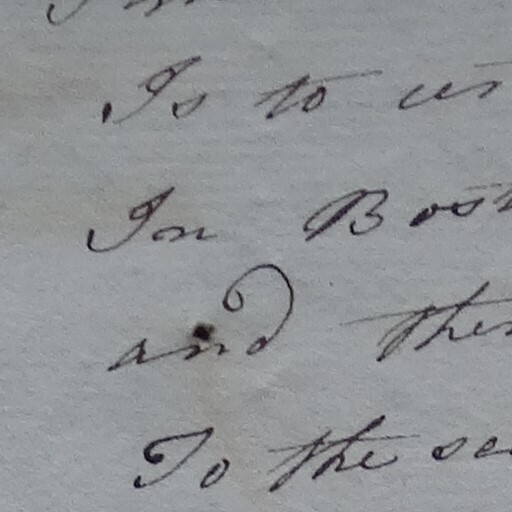 Is to us
In Bost
and then
To the sc